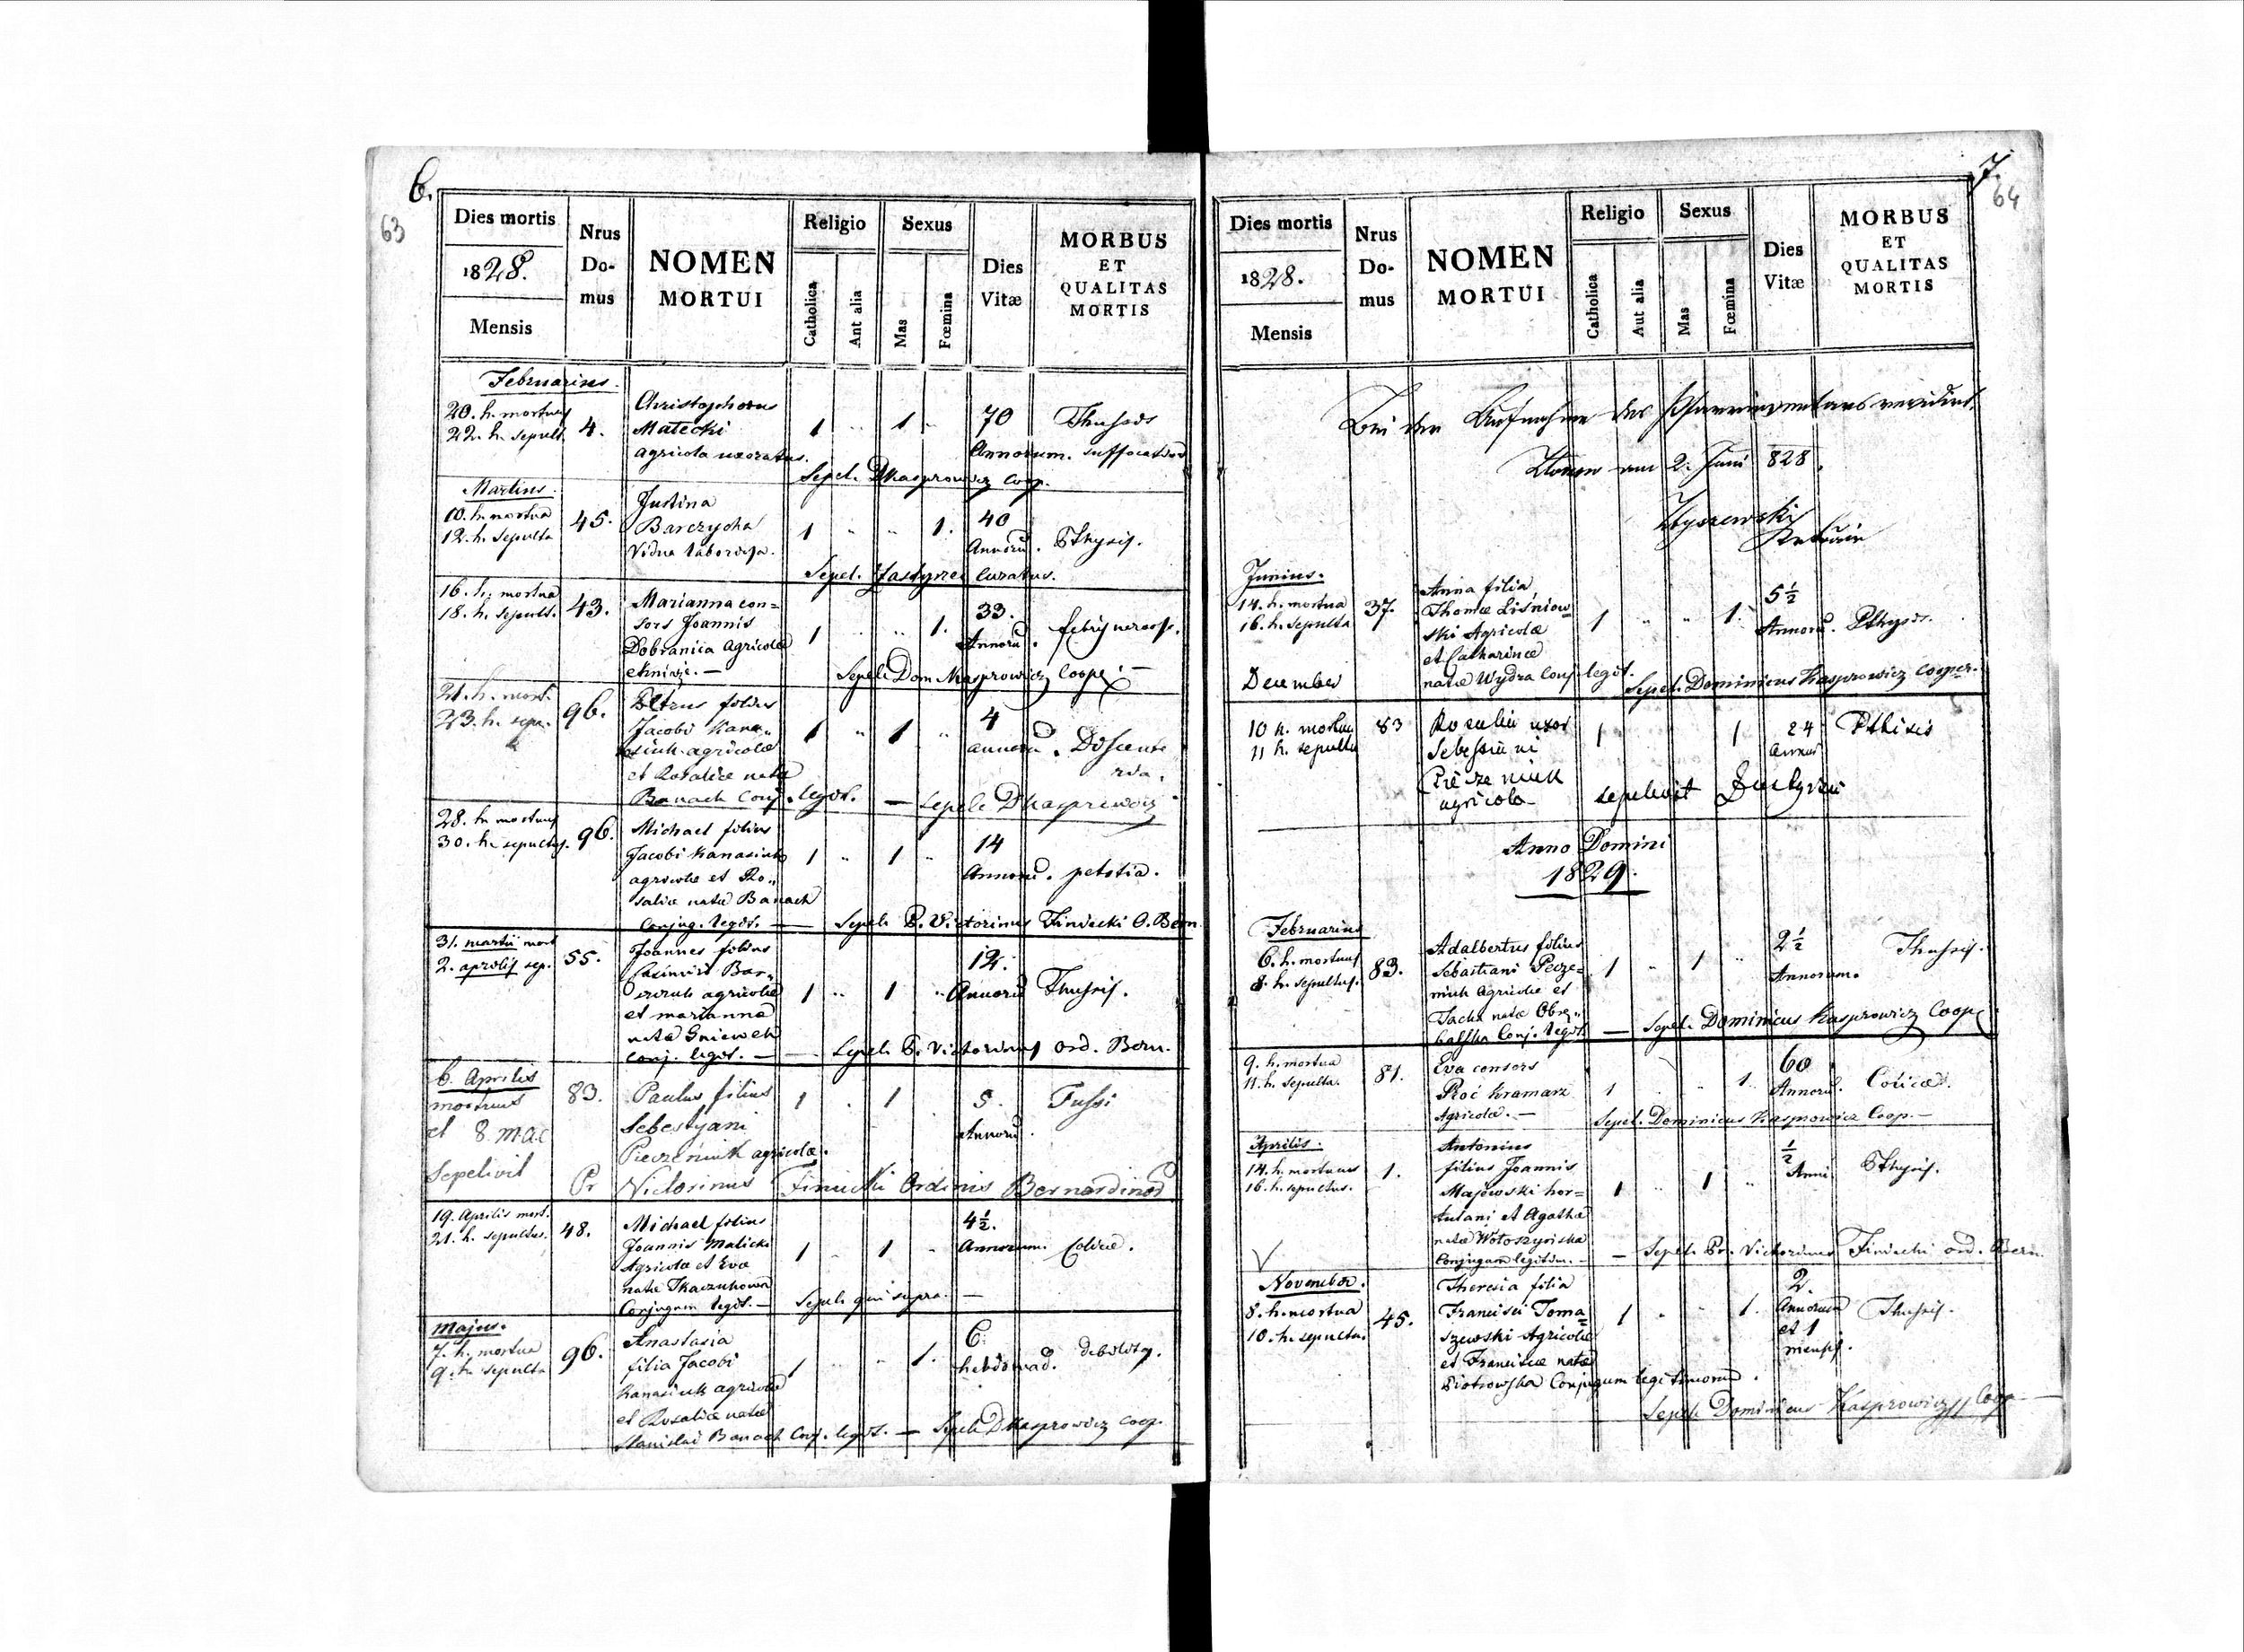 6.
63
Dies mortis
1828.
Mensis
Nrus
Do-
mus
NOMEN
MORTUI
Religio
Catholica
Aut alia
Sexus
Mas
Fœmina
Dies
Vitæ
MORBUS
ET
QUALITAS
MORTIS
Februarius.
20. h. mortuus
22. h. sepult.
4.
Christophorus
Matecki
agricola uxoratus.
1 .. 1 ..
70
Annorum.
Thussis
suffocativa
Sepel. D Kasprowicz Coop.
Martius.
10. h. mortua
12. h. Sepulta
45.
Justina
Barczycha
Vidua laboriosa.
1 .. .. 1.
40
Annorū.
Pthysis.
Sepel. Zastyrzec Curatus.
16. h. mortua
18. h. sepult.
43.
Marianna con=
sors Joannis
Dobranica Agricolæ
1 .. .. 1.
33.
Annorū.
febris nervosa.
Sepel. Dom Kasprowicz Coop.
21. h. mort.
23. h. sepu.
96.
Petrus filius
Jacobi Kana„
siuk agricolæ
et Rosaliæ natæ
Banach Conj. legit.
1 .. 1 ..
4
annorū.
— Sepel. D Kasprowicz
28. h. mortuus
30. h. sepultus.
96.
Michael filius
Jacobi Kanasiuk
agricolæ et Ro„
saliæ natæ Banach
Conjug. legit. —
1 .. 1 ..
14
Annorū.
Sepel. P. Victorinus Finicki O. Bern.
31. martii mort
2. aprilis sep.
55.
Joannes filius
Casimiri Bar„
agricolæ
et marianna
nata Gniewek
conj. legit. —
1 .. 1 ..
12.
Annorū
Thussis.
Sepel. P. Victorinus ord. Bern.
6. Aprilis
mortuus
et 8. mac
Sepelivit
83.
Paulus filius
Sebestyani
Pieczeniuk agricolæ.
1 . 1
5.
Annorū.
Tussi
Pr Victorinus Finicki Ordinis Bernardinod
19. Aprilis mort.
21. h. sepultus.
48.
Michael filius
Joannis Malicki
Agricolæ et Eva
natæ Tkaczukowna
Conjugum legit. —
1 .. 1 ..
4½.
Annorum.
Colica.
Sepel. qui supra. —
Majus.
7. h. mortua
9. h. sepulta
96.
Anastasia
filia Jacobi
Kanasiuk agricolæ
et Rosaliæ natæ
Stanislai Banach Conj. legit. — Sepel. D Kasprowicz Coop.
1 .. .. 1.
6.
hebdomad.
debilitas.
7.
64
Dies mortis
1828.
Mensis
Nrus
Do-
mus
NOMEN
MORTUI
Religio
Catholica
Aut alia
Sexus
Mas
Fœmina
Dies
Vitæ
MORBUS
ET
QUALITAS
MORTIS
Bei der Aufnahme des Pfarrinventars revidirt.
am 2. Juni 828.
Junius.
14. h. mortua
16. h. sepulta
37.
Anna filia
Thomæ Liśniow
ski Agricolæ
et Catharinæ
natæ Wydra Conj. legit.
1 .. .. 1.
5½
Annorū.
Pthysis.
Sepel. Dominicus Kasprowicz Cooper.
December
10 h. mortua
11 h. sepulta
83
Rosalia uxor
Sebestiani
Piecze niuk
agricola
1 1
24
Annor
Pthisis
sepelivit Zastyrzec
Anno Domini
1829.
Februarius
6. h. mortuus
8. h. sepultus.
83.
Adalbertus filius
Sebastiani Piecze=
niuk Agricolæ et
1 .. 1 ..
2½
Annorum.
Thussis.
Conj. legit. — Sepel. Dominicus Kasprowicz Coop.
9. h. mortua
11. h. sepulta.
81.
Eva consors
Roć Kramarz
Agricolæ. —
1 . . 1.
60
Annorū.
Colica.
Sepel. Dominicus Kasprowicz Coop. —
Aprilis.
14. h. mortuus
16. h. sepultus.
1.
Antonius
filius Joannis
Majewski hor=
tulani et Agatha
natæ Wołoszyńska
Conjugum legitim. —
1 .. 1 ..
½
Anni
Pthysis.
— Sepel. Pr. Victorinus Finicki ord. Bern.
November.
8. h. mortua
10. h. sepulta.
45.
Theresia filia
Francisci Toma=
szewski Agricolæ
et Franciscæ natæ
Piotrowska Conjugum legitimorum.
1 .. .. 1.
2.
Annorum
et 1
mensis.
Thussis.
Sepel. Dominicus Kasprowicz Coop